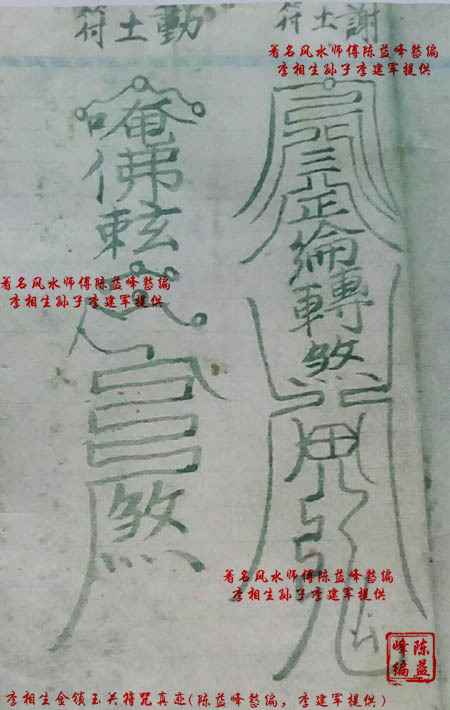 謝土符
著名风水师傅陈益峰整编
李相生孙子李建军提供
三
綸轉煞
動土符
唵佛
煞
著名风水师傅陈益峰整编
李相生孙子李建军提供
著名风水师傅陈益峰整编
李相生孙子李建军提供
陈益
峰编
李相生金锁玉关符咒真迹(陈益峰整编，李建军提供)